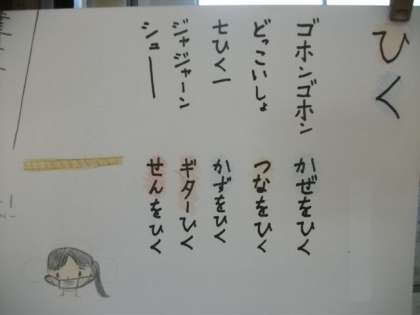 ひく
ゴホンゴホン かぜをひく
どっこいしょ つなをひく
七ひく一 かずをひく
ジャジャーン ギターひく
シューー せんをひく